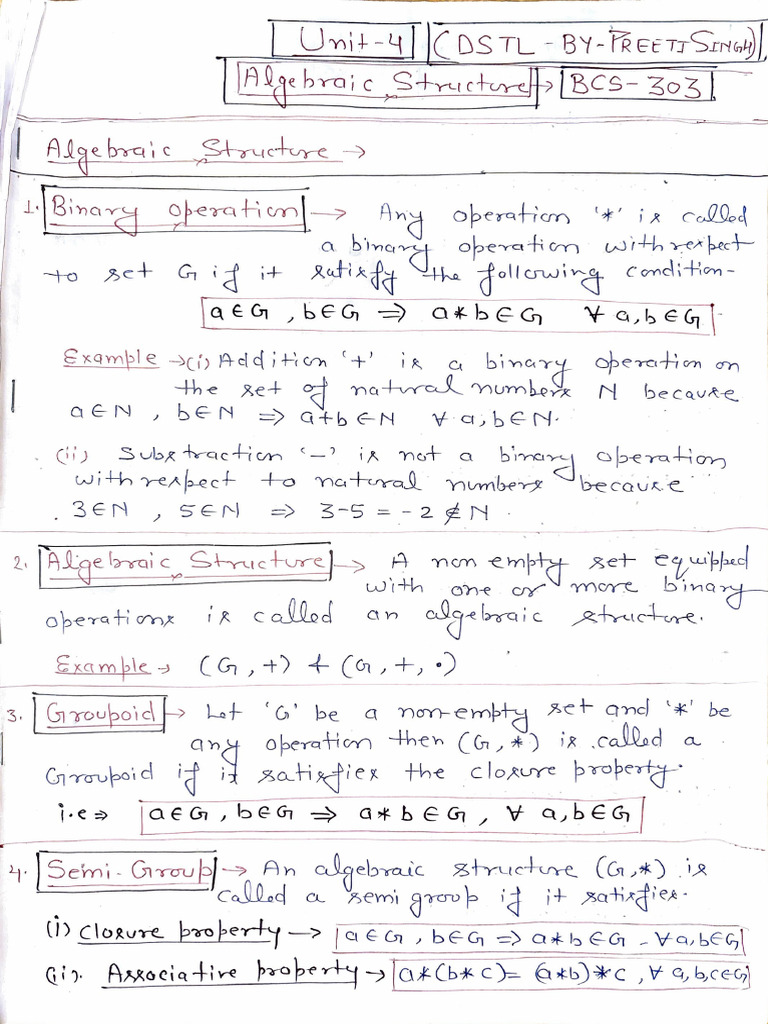 Unit-4 (DSTL-BY-PREETI SINGH)
Algebraic Structure → BCS-303
Algebraic Structure →
1. Binary Operation → Any operation '*' is called
a binary operation with respect
to set G if it satisfy the following condition-
a∈G, b∈G ⇒ a*b∈G ∀ a,b∈G
Example →(i) Addition '+' is a binary operation on
the set of natural numbers N because
a∈N, b∈N ⇒ a+b∈N ∀ a,b∈N.
(ii) Substraction '-' is not a binary operation
with respect to natural numbers because
3∈N, 5∈N ⇒ 3-5=-2∉N.
2. Algebraic Structure → A non empty set equipped
with one or more binary
operations is called an algebraic structure.
Example → (G,+) & (G,+,·)
3. Groupoid → Let 'G' be a non-empty set and '*' be
any operation then (G,*) is called a
Groupoid if it satisfies the closure property.
i.e ⇒ a∈G, b∈G ⇒ a*b∈G, ∀ a,b∈G
4. Semi-Group → An algebraic structure (G,*) is
called a semi group if it satisfies.
(i) Closure property → a∈G, b∈G ⇒ a*b∈G - ∀a,b∈G
(ii). Associative property → a*(b*c)=(a*b)*c, ∀ a,b,c∈G